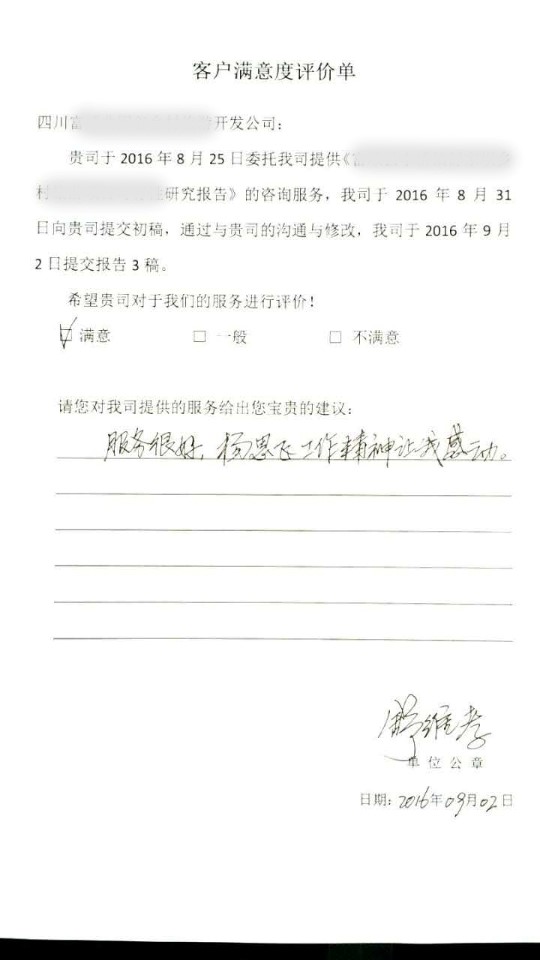 客户满意度评价单
四川富 开发公司：
贵司于 2016 年 8 月 25 日委托我司提供《
村 研究报告》的咨询服务，我司于 2016 年 8 月 31
日向贵司提交初稿，通过与贵司的沟通与修改，我司于 2016 年 9 月
2 日提交报告 3 稿。
希望贵司对于我们的服务进行评价！
满意 □ 一般 □ 不满意
请您对我司提供的服务给出您宝贵的建议：
服务很好，杨思飞工作精神让我感动。
单位公章
日期：2016年09月02日